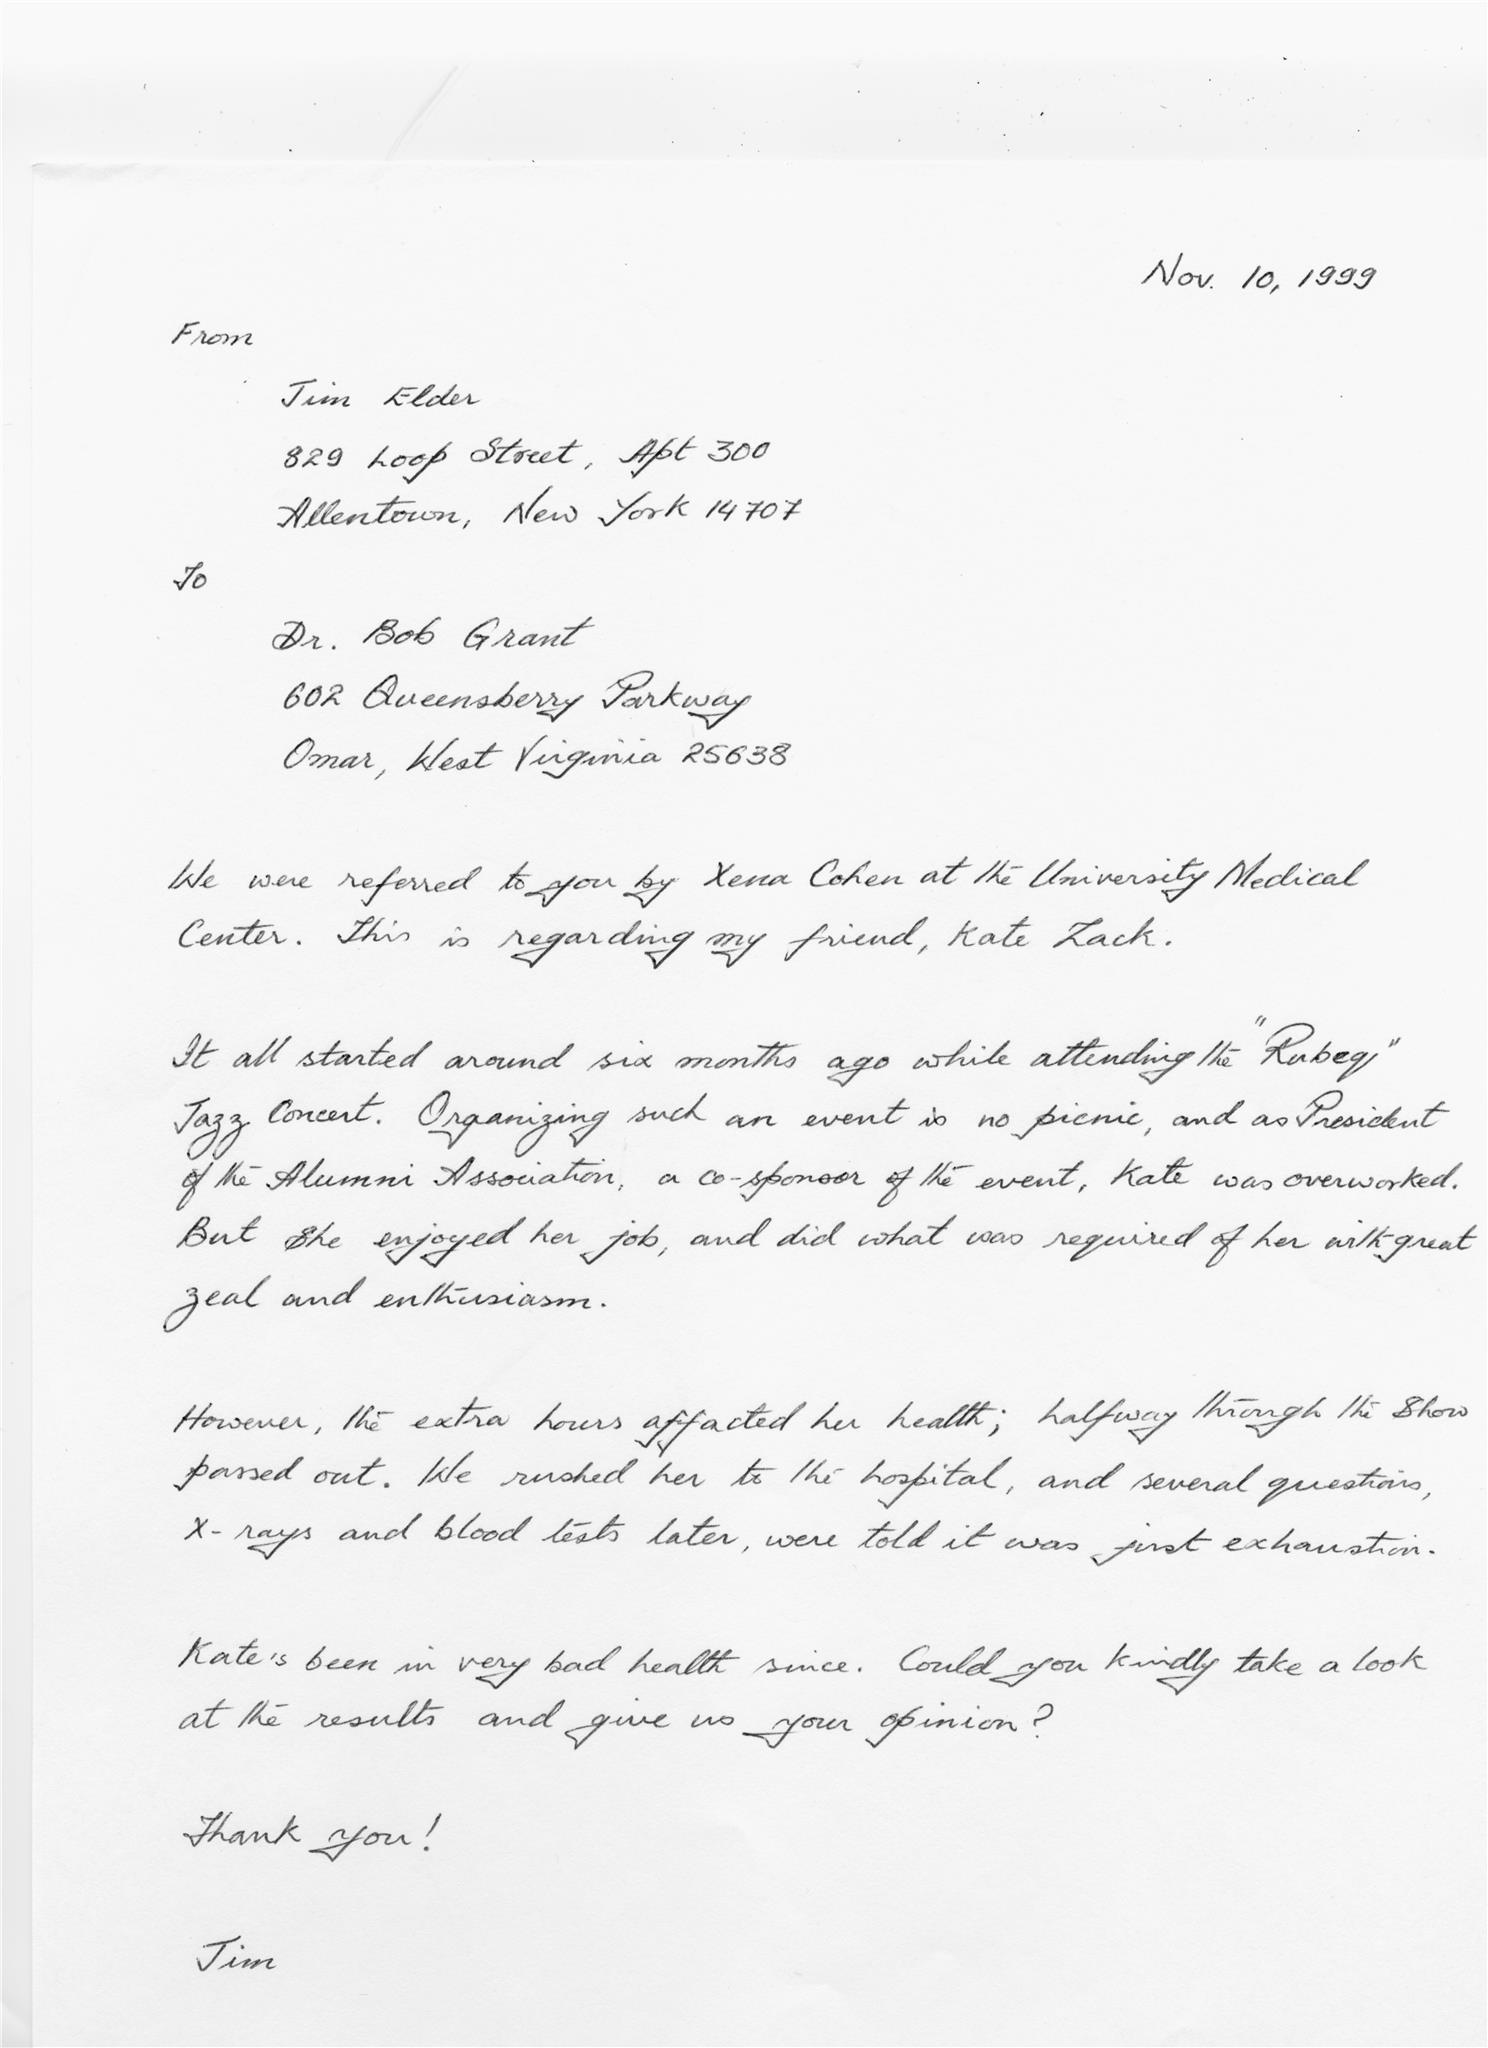 Nov. 10, 1999
From
Jim Elder
829 Loop Street, Apt 300
Allentown, New York 14707
To
Dr. Bob Grant
602 Queensberry Parkway
Omar, West Virginia 25638
We were referred to you by Xena Cohen at the University Medical
Center. This is regarding my friend, Kate Zack.
It all started around six months ago while attending the "Rubeq"
Jazz Concert. Organizing such an event is no picnic, and as President
of the Alumni Association, a co-sponsor of the event, Kate was overworked.
But she enjoyed her job, and did what was required of her with great
zeal and enthusiasm.
However, the extra hours affacted her health; halfway through the show
passed out. We rushed her to the hospital, and several questions,
x-rays and blood tests later, were told it was just exhaustion.
Kate's been in very bad health since. Could you kindly take a look
at the results and give us your opinion?
Thank you!
Jim